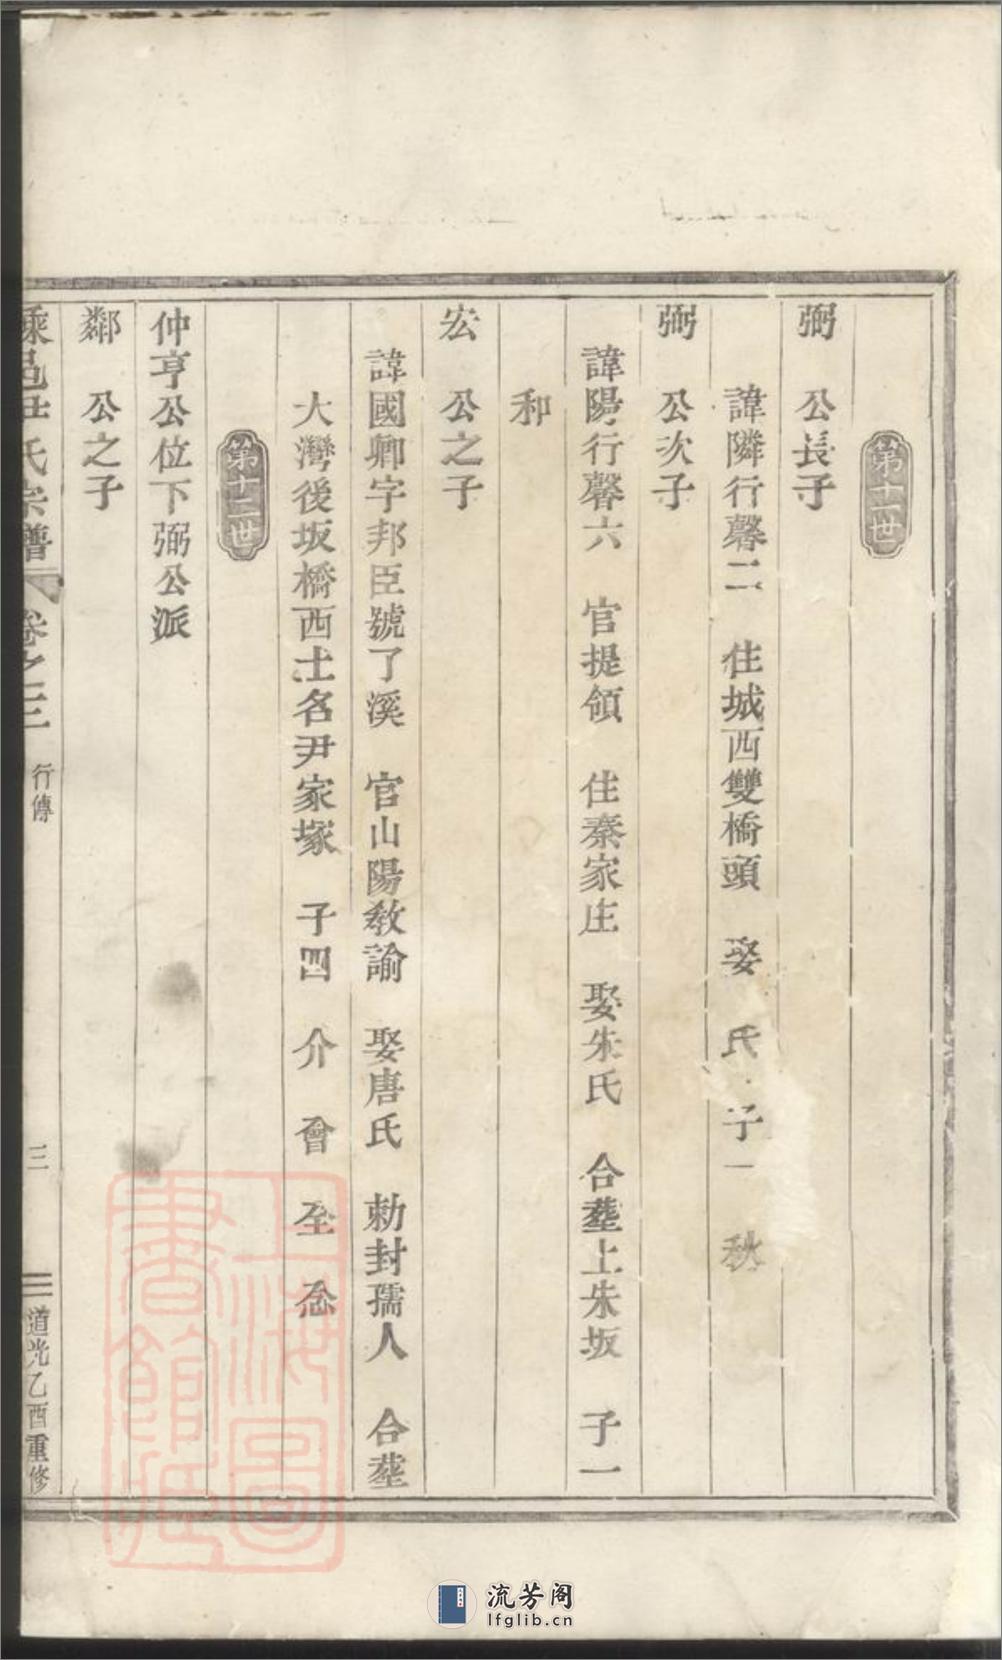 第十一世
弼　公長子
諱隣行馨二　住城西雙橋頭　娶　氏　子一　秋
弼　公次子
諱陽行馨六　官提領　住秦家庄　娶朱氏　合塟上朱坂　子一
和
宏　公之子
諱國卿字邦臣號了溪　官山陽教諭　娶唐氏　勅封孺人　合塟
大灣後坂橋西土名尹家塚　子四　介　會　至　念
第十二世
仲亨公位下弼公派
鄰　公之子
氏宗譜　卷之三　行傳　三　道光乙酉重修
上海圖書館藏
流芳阁
lfglib.cn